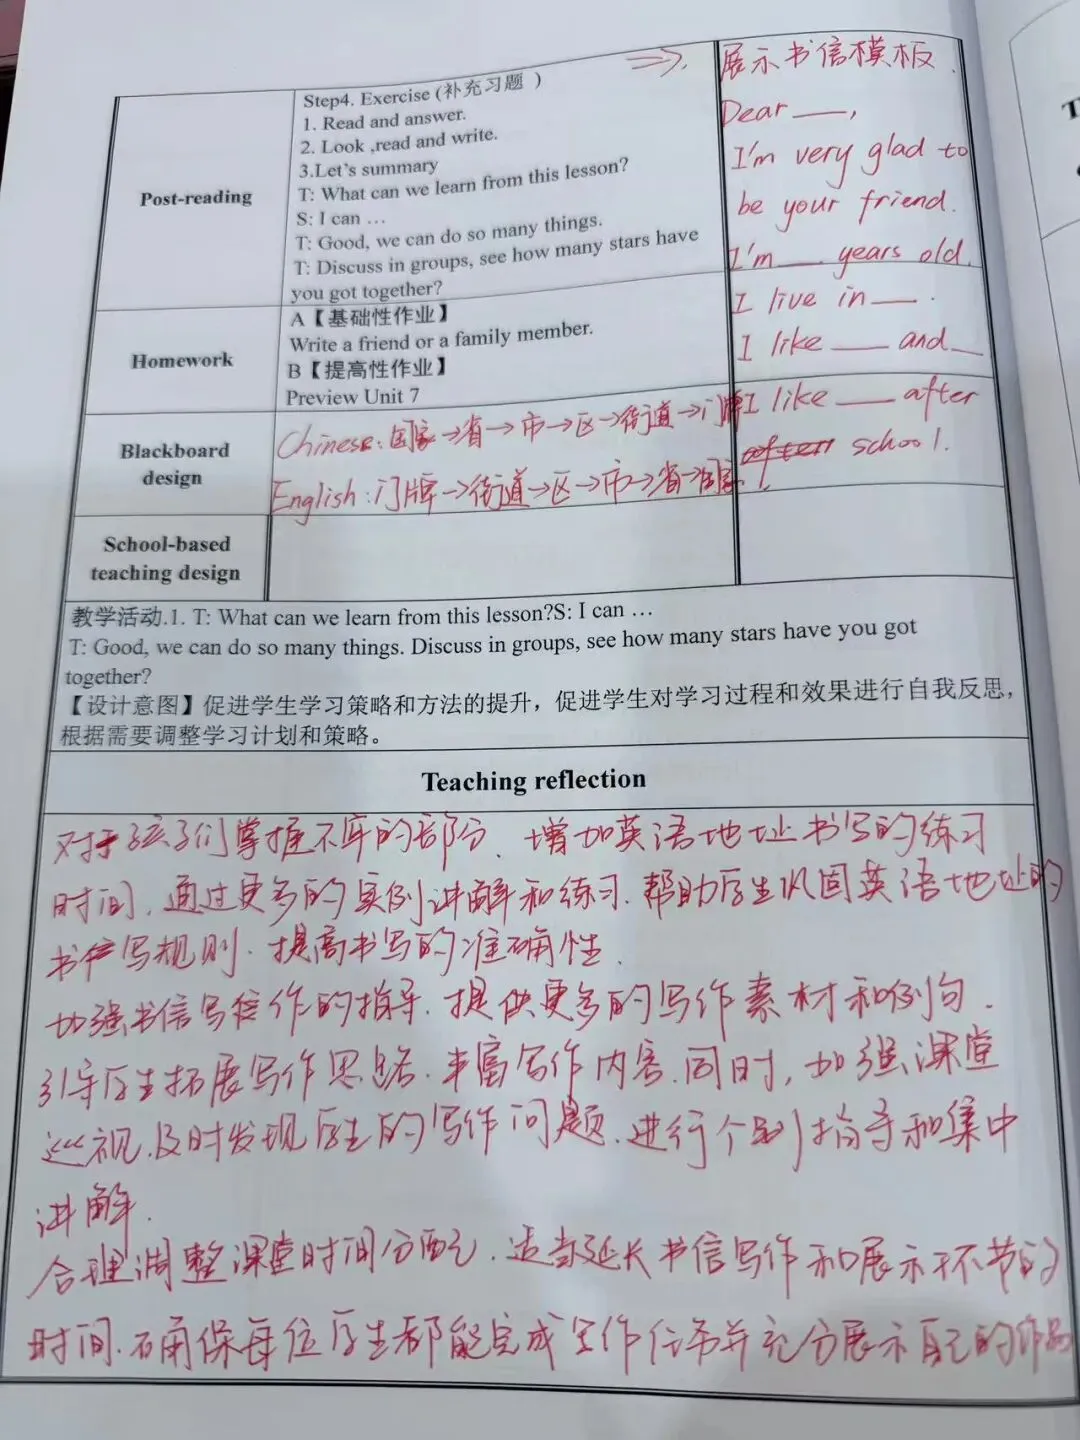 Post-reading
Step4. Exercise (补充习题 )
1. Read and answer.
2. Look ,read and write.
3.Let's summary
T: What can we learn from this lesson?
S: I can …
T: Good, we can do so many things.
T: Discuss in groups, see how many stars have
you got together?
⇒.
展示书信模板.
Dear ___,
I'm very glad to
be your friend.
I'm ___ years old.
I live in ___.
I like ___ and __
I like ___ after
school.
Homework
A【基础性作业】
Write a friend or a family member.
B【提高性作业】
Preview Unit 7
Blackboard
design
Chinese: 国家→省→市→区→街道→门牌
English: 门牌→街道→区→市→省→国家.
School-based
teaching design
教学活动.1. T: What can we learn from this lesson?S: I can …
T: Good, we can do so many things. Discuss in groups, see how many stars have you got
together?
【设计意图】促进学生学习策略和方法的提升，促进学生对学习过程和效果进行自我反思，
根据需要调整学习计划和策略。
Teaching reflection
对于孩子们掌握不牢的部分、增加英语地址书写的练习
时间，通过更多的实例讲解和练习.帮助学生巩固英语地址的
书写规则.提高书写的准确性.
加强书信写作的指导.提供更多的写作素材和例句.
引导学生拓展写作思路.丰富写作内容.同时，加强课堂
巡视.及时发现学生的写作问题.进行个别指导和集中
讲解.
合理调整课堂时间分配.适当延长书信写作和展示环节的
时间.确保每位学生都能完成写作任务并充分展示自己的作品